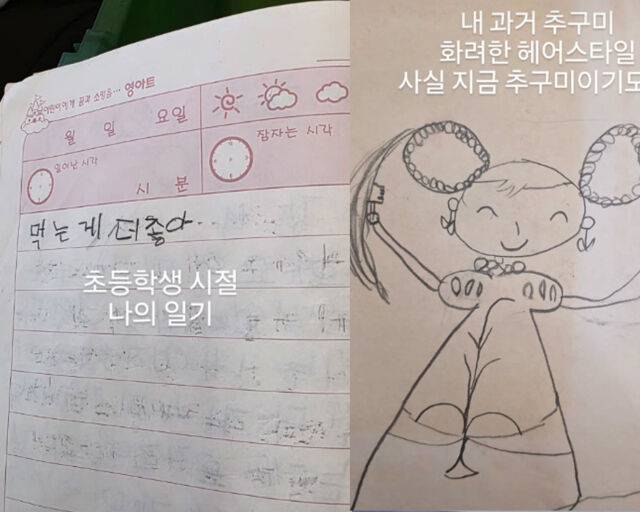 어린이에게 꿈과 소망을... 영아트
월 일 요일
일어난 시각
시 분
잠자는 시각
먹는게 더좋아
초등학생 시절
나의 일기
내 과거 추구미
화려한 헤어스타일
사실 지금 추구미이기도